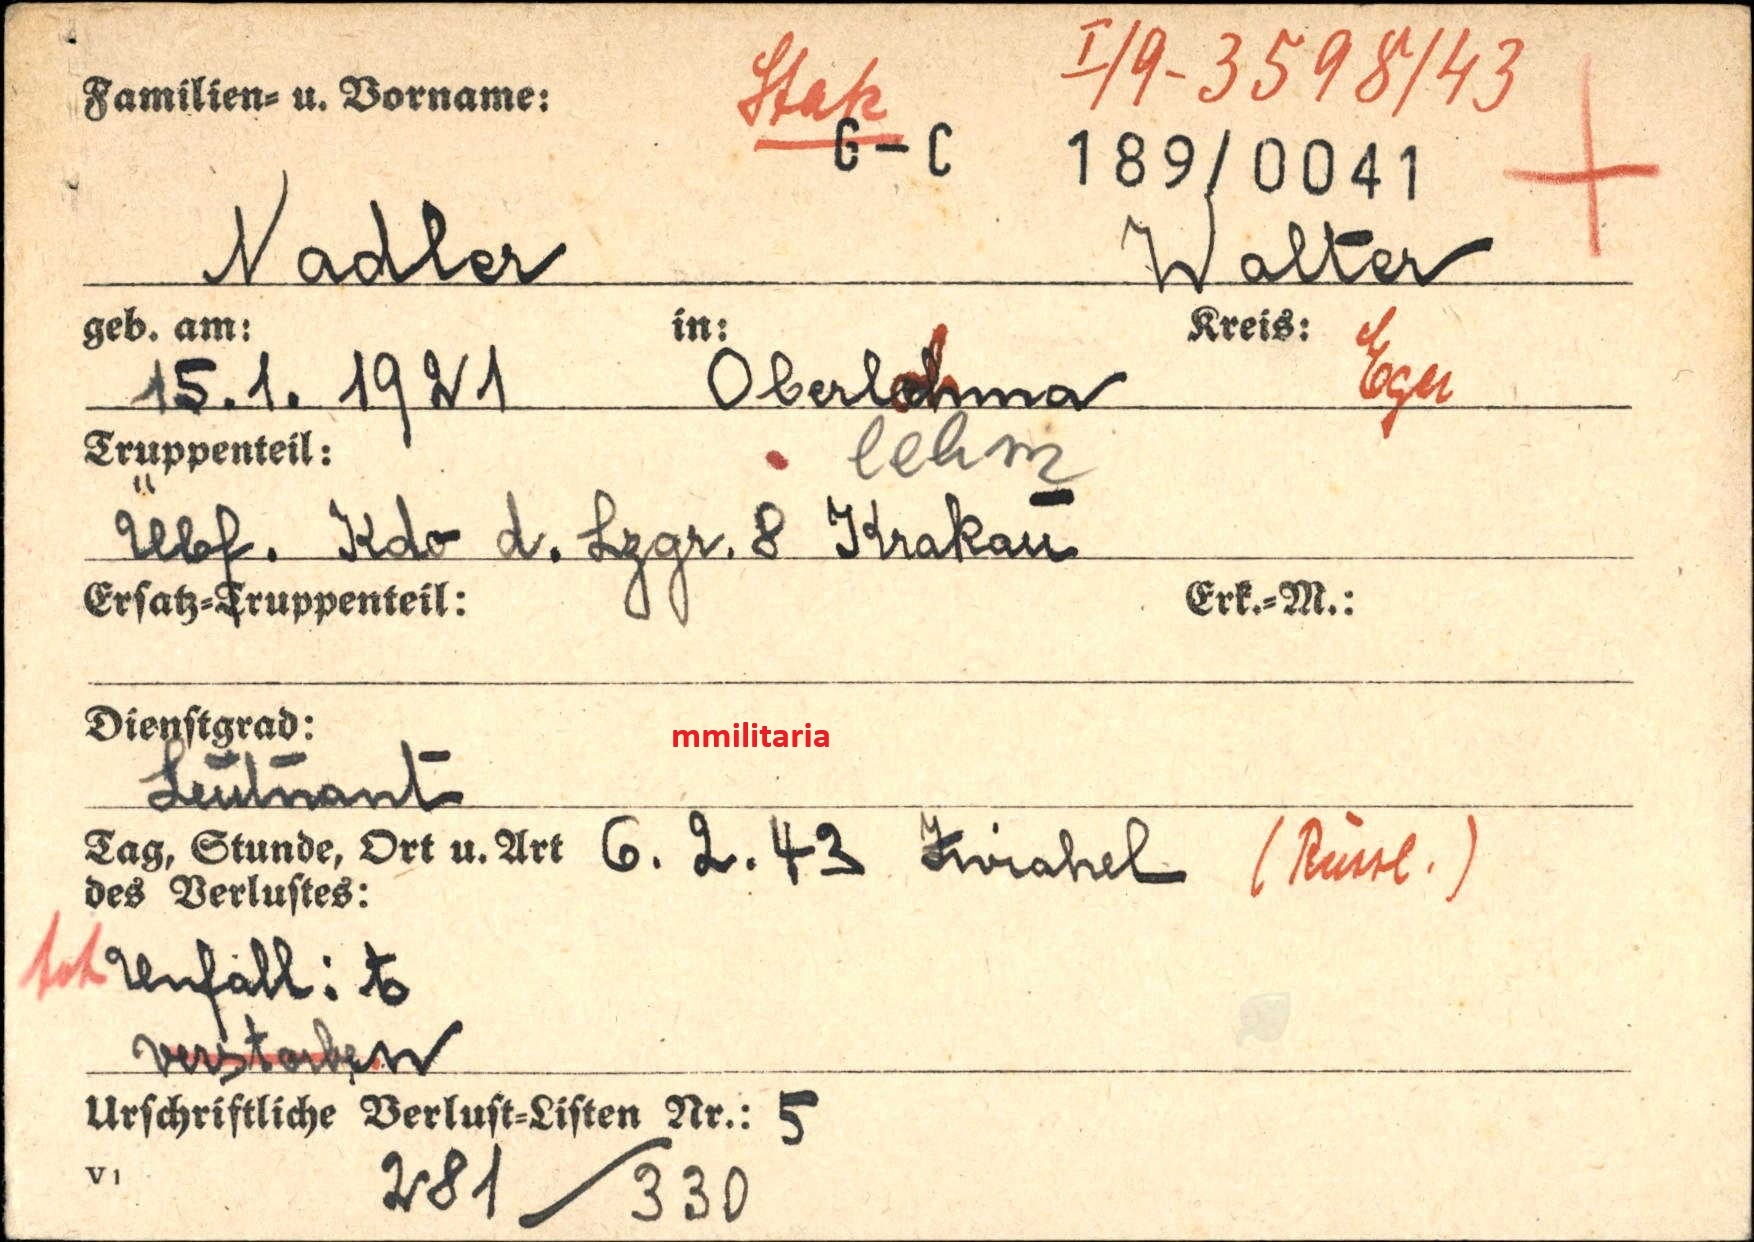 I/9-3598/43
Familien- u. Vorname:
G-C 189/0041
Nadler Walter
geb. am: in: Kreis: Eger
15.1.1921 Oberlohma
Truppenteil: lehm
Übf. Kdo d. Lzgr. 8 Krakau
Ersatz-Truppenteil: Erk.-M.:
Dienstgrad:
mmilitaria
Leutnant
Tag, Stunde, Ort u. Art 6.2.43 Zwiahel (Russl.)
des Verlustes:
tot Unfall:
verstorben
Urschriftliche Verlust-Listen Nr.: 5
V1 281/330